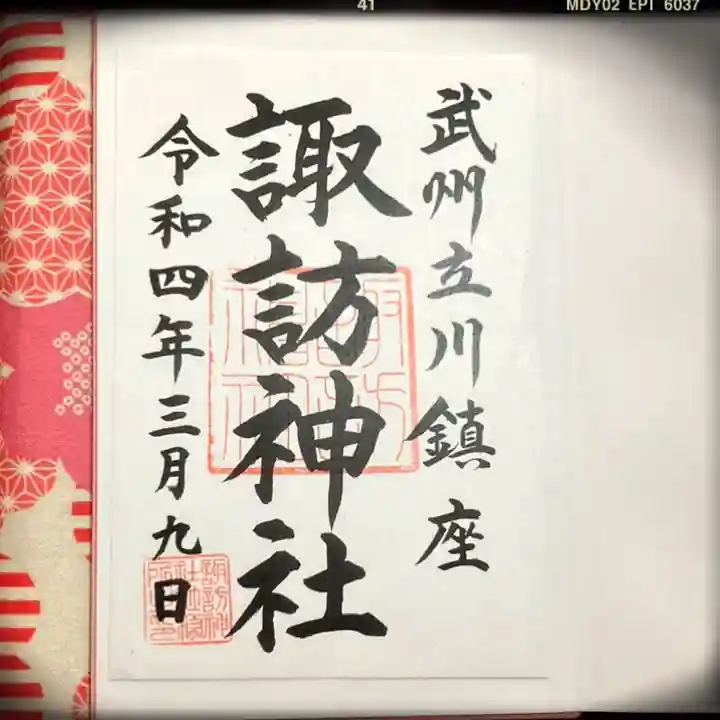 41
MDY02 EPT 6037
武州立川鎮座
諏訪神社
令和四年三月九日
諏訪神社